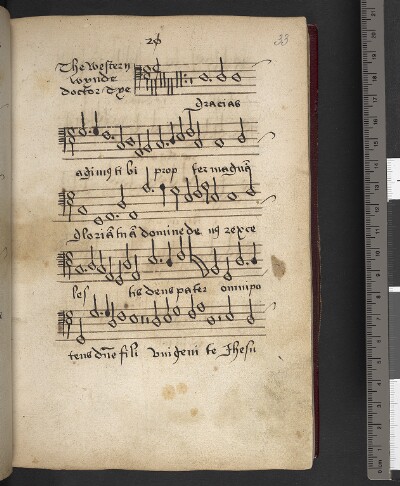 28 33
The western
wynde
doctor Tye
Gracias
agimus tibi prop ter magnā
gloriā tuā domine de us rex ce
les tis deus pater omnipo
tens dñe fili unigeni te Jhesu